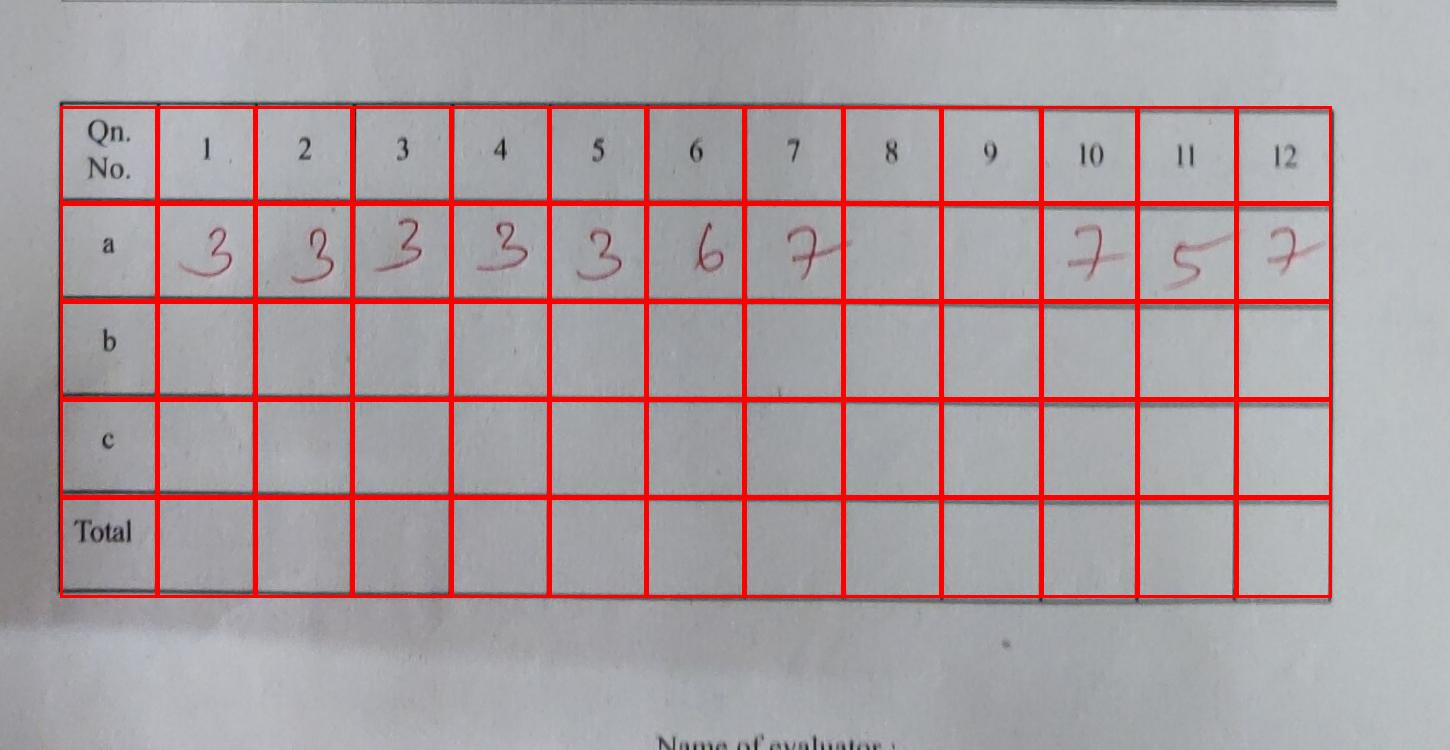 Qn. No. 1 2 3 4 5 6 7 8 9 10 11 12
a 3 3 3 3 3 6 7 7 5 7
b
c
Total
Name of evaluator :